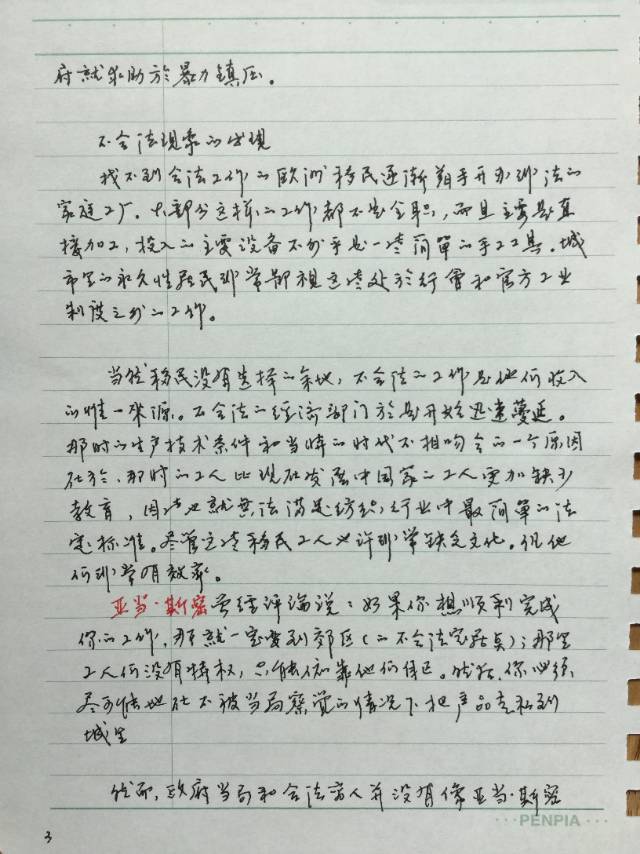 府就求助於暴力镇压。
不合法现象的出现
找不到合法工作的欧洲移民逐渐着手开办非法的
家庭工厂。大部分这样的工作都不是全职，而且主要是直
接加工，投入的主要设备不外乎是一些简單的手工工具。城
市里的永久性居民非常鄙视这些处於行會和官方工业
制度之外的工作。
当然移民没有选择的余地，不合法的工作是他们收入
的惟一来源。不合法的经济部门於是开始迅速蔓延。
那时的生产技术条件和当時的时代不相吻合的一个原因
在於，那时的工人比现在发展中国家的工人更加缺少
教育，因此也就無法满足纺织行业中最简單的法
定标准。尽管这些移民工人也许非常缺乏文化。但他
们非常有效率。
亚当·斯密曾经评论说：如果你想顺利完成
你的工作，那就一定要到郊区(的不合法定居点)；那里
工人们没有特权，只能依靠他们自己。然后，你必须
尽可能地在不被当局察觉的情况下把产品走私到
城里
然而，政府当局和合法商人并没有像亚当·斯密
PENPIA
3